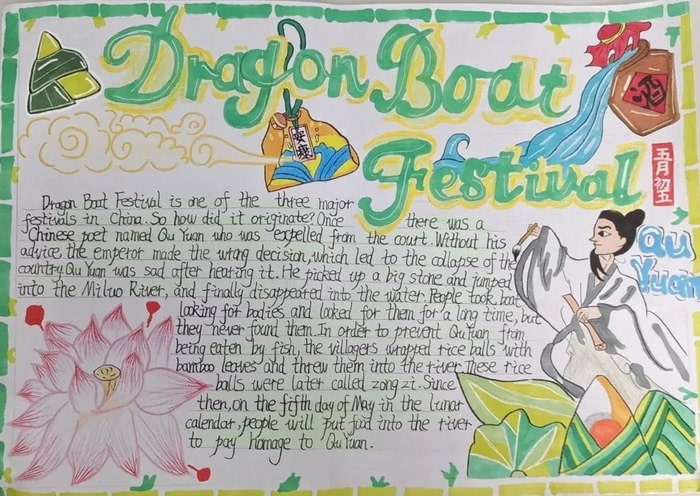 Dragon Boat
Festival
酒
安康
五月初五
Qu
Yuan
Dragon Boat Festival is one of the three major
festivals in China. So how did it originate? Once there was a
Chinese poet named Qu Yuan who was expelled from the court. Without his
advice, the emperor made the wrong decision, which led to the collapse of the
country. Qu Yuan was sad after hearing it. He picked up a big stone and jumped
into the Miluo River, and finally disappeared into the water. People took boat
looking for bodies and looked for them for a long time, but
they never found them. In order to prevent Qu Yuan from
being eaten by fish, the villagers wrapped rice balls with
bamboo leaves and threw them into the river. These rice
balls were later called zong zi. Since
then, on the fifth day of May in the lunar
calendar, people will put food into the river
to pay homage to Qu Yuan.